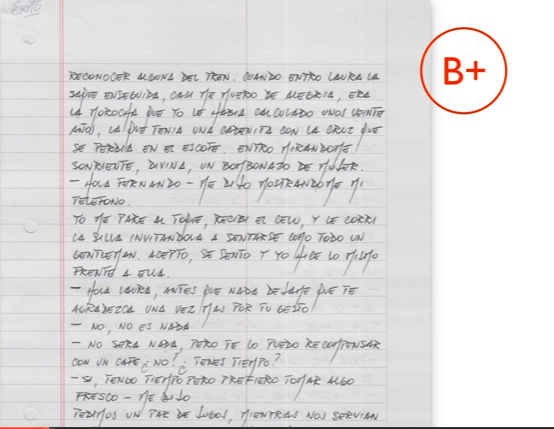 Exito
B+
RECONOCER ALGUNA DEL TREN. CUANDO ENTRO LAURA LA
SAQUE ENSEGUIDA, CASI ME MUERO DE ALEGRIA, ERA
LA MOROCHA QUE YO LE HABIA CALCULADO UNOS VEINTE
AÑOS, LA QUE TENIA UNA CADENITA CON LA CRUZ QUE
SE PERDIA EN EL ESCOTE. ENTRO MIRANDOME
SONRIENTE, DIVINA, UN BOMBONAZO DE MUJER.
– HOLA FERNANDO – ME DIJO MOSTRANDOME MI
TELEFONO.
YO ME PARE AL TOQUE, RECIBI EL CELU, Y LE CORRI
LA SILLA INVITANDOLA A SENTARSE COMO TODO UN
GENTLEMAN. ACEPTO, SE SENTO Y YO HICE LO MISMO
FRENTE A ELLA.
– HOLA LAURA, ANTES QUE NADA DEJAME QUE TE
AGRADEZCA UNA VEZ MAS POR TU GESTO
– NO, NO ES NADA
– NO SERA NADA, PERO TE LO PUEDO RECOMPENSAR
CON UN CAFE ¿NO? ¿TENES TIEMPO?
– SI, TENGO TIEMPO PERO PREFIERO TOMAR ALGO
FRESCO – ME DIJO
PEDIMOS UN PAR DE JUGOS, MIENTRAS NOS SERVIAN